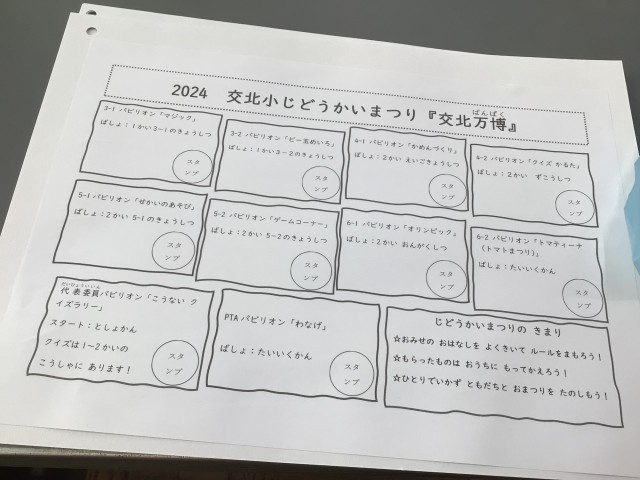 2024 交北小じどうかいまつり『交北万博』
ばんぱく
3-1 パビリオン「マジック」
ばしょ：1かい3-1のきょうしつ
スタンプ
3-2 パビリオン「ビー玉めいろ」
ばしょ：1かい3-2のきょうしつ
スタンプ
4-1 パビリオン「かめんづくり」
ばしょ：2かい えいごきょうしつ
スタンプ
4-2 パビリオン「クイズ かるた」
ばしょ：2かい ずこうしつ
スタンプ
5-1 パビリオン「せかいのあそび」
ばしょ：2かい 5-1のきょうしつ
スタンプ
5-2 パビリオン「ゲームコーナー」
ばしょ：2かい 5-2のきょうしつ
スタンプ
6-1 パビリオン「オリンピック」
ばしょ：2かい おんがくしつ
スタンプ
6-2 パビリオン「トマティーナ
（トマトまつり）」
ばしょ：たいいくかん
スタンプ
だいひょういいん
代表委員パビリオン「こうない ク
イズラリー」
スタート：としょかん
クイズは1～2かいの
こうしゃに あります！
スタンプ
PTA パビリオン「わなげ」
ばしょ：たいいくかん
スタンプ
じどうかいまつりの きまり
☆おみせの おはなしを よくきいて ルールをまもろう！
☆もらったものは おうちに もってかえろう！
☆ひとりでいかず ともだちと おまつりを たのしもう！